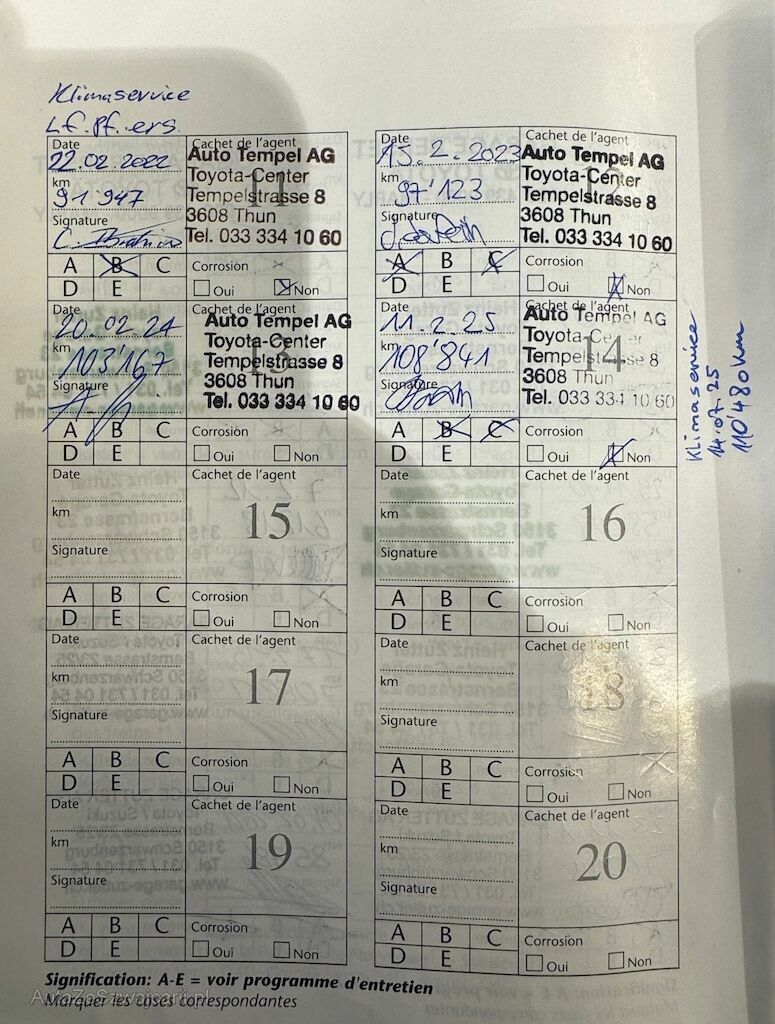 Klimaservice
Lf. Pf. ers.
Date
22.02.2022
km
91'947
Signature
Cachet de l'agent
11
Auto Tempel AG
Toyota-Center
Tempelstrasse 8
3608 Thun
Tel. 033 334 10 60
A B C
D E
Corrosion
Oui Non
Date
15.2.2023
km
97'123
Signature
Cachet de l'agent
Auto Tempel AG
Toyota-Center
Tempelstrasse 8
3608 Thun
Tel. 033 334 10 60
A B C
D E
Corrosion
Oui Non
Date
20.02.24
km
103'167
Signature
Cachet de l'agent
13
Auto Tempel AG
Toyota-Center
Tempelstrasse 8
3608 Thun
Tel. 033 334 10 60
A B C
D E
Corrosion
Oui Non
Date
11.2.25
km
108'841
Signature
Cachet de l'agent
14
Auto Tempel AG
Toyota-Center
Tempelstrasse 8
3608 Thun
Tel. 033 334 10 60
A B C
D E
Corrosion
Oui Non
Klimaservice
14.07.25
110'480 km
Date
km
Signature
Cachet de l'agent
15
A B C
D E
Corrosion
Oui Non
Date
km
Signature
Cachet de l'agent
16
A B C
D E
Corrosion
Oui Non
Date
km
Signature
Cachet de l'agent
17
A B C
D E
Corrosion
Oui Non
Date
km
Signature
Cachet de l'agent
18
A B C
D E
Corrosion
Oui Non
Date
km
Signature
Cachet de l'agent
19
A B C
D E
Corrosion
Oui Non
Date
km
Signature
Cachet de l'agent
20
A B C
D E
Corrosion
Oui Non
Signification: A-E = voir programme d'entretien
Marquer les cases correspondantes
AutaZeSzwajcarii.pl